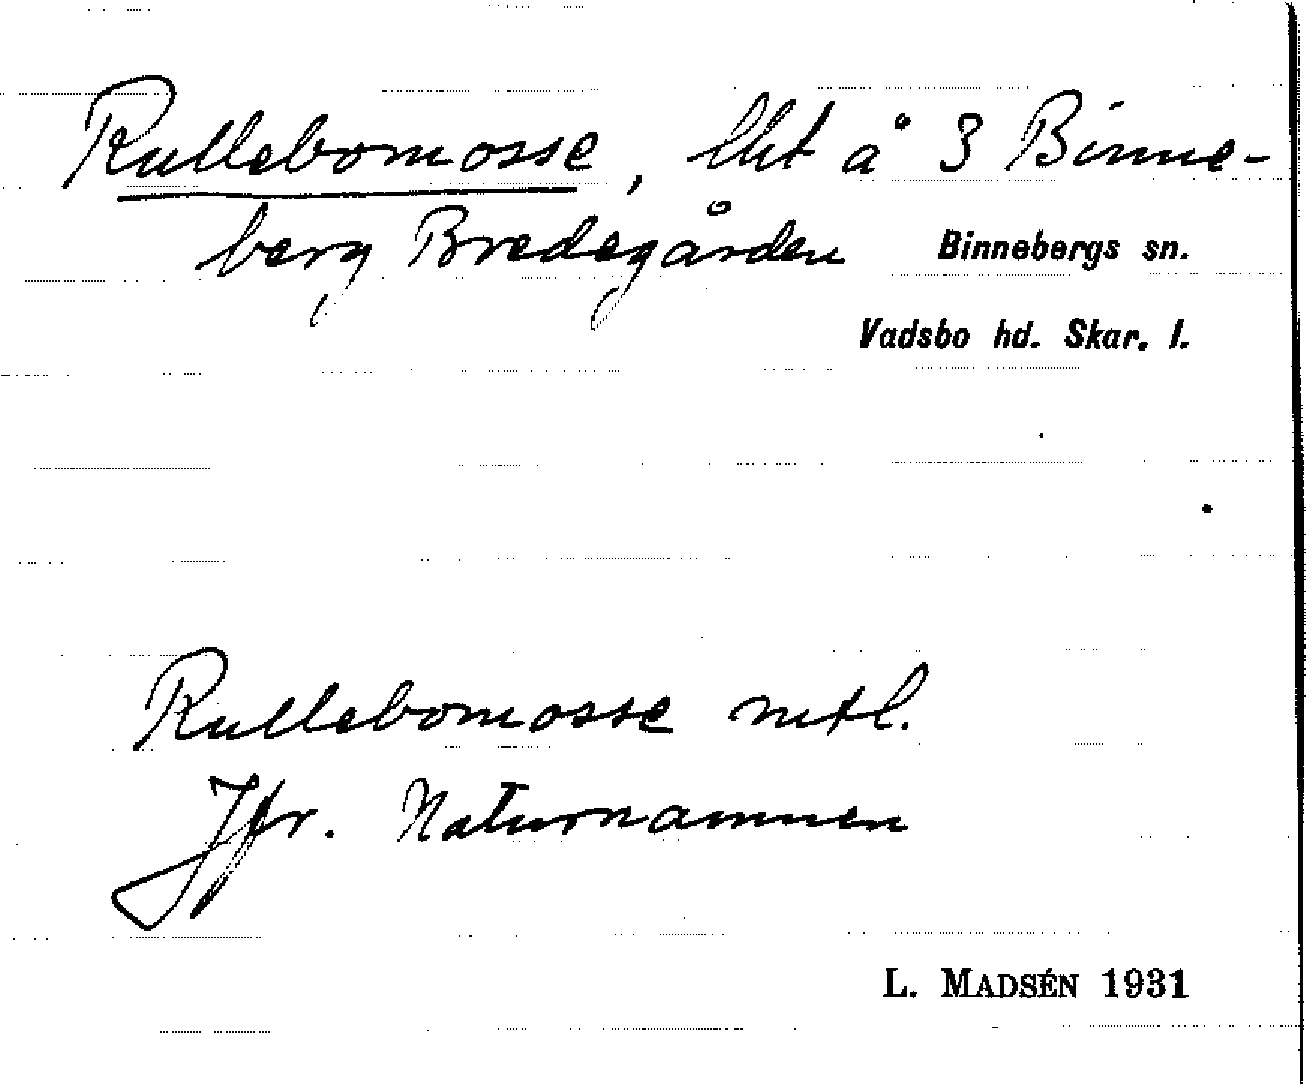 Rullebomosse, lht å 3 Binne-
berg Bredegården
Binnebergs sn.
Vadsbo hd. Skar. l.
Rullebomosse mtl.
Jfr. Naturnamnen
L. MADSÉN 1931